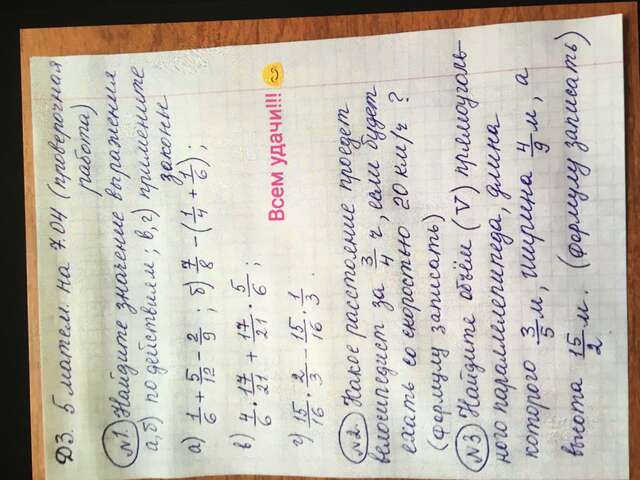 ДЗ. 5 матем. на 7.04 (проверочная
работа)
№1 Найдите значение выражения
а,б) по действиям; в,г) примените
законы
а) 1/6 + 5/12 - 2/9 ; б) 7/8 - (1/4 + 1/6);
в) 4/6 · 17/21 + 17/21 · 5/6 ;
г) 15/16 · 2/3 - 15/16 · 1/3 .
Всем удачи!!!
№2. Какое расстояние проедет
велосипедист за 3/4 ч, если будет
ехать со скоростью 20 км/ч ?
(формулу записать)
№3 Найдите объём (V) прямоуголь-
ного параллелепипеда, длина
которого 3/5 м, ширина 4/9 м, а
высота 15/2 м. (формулу записать)